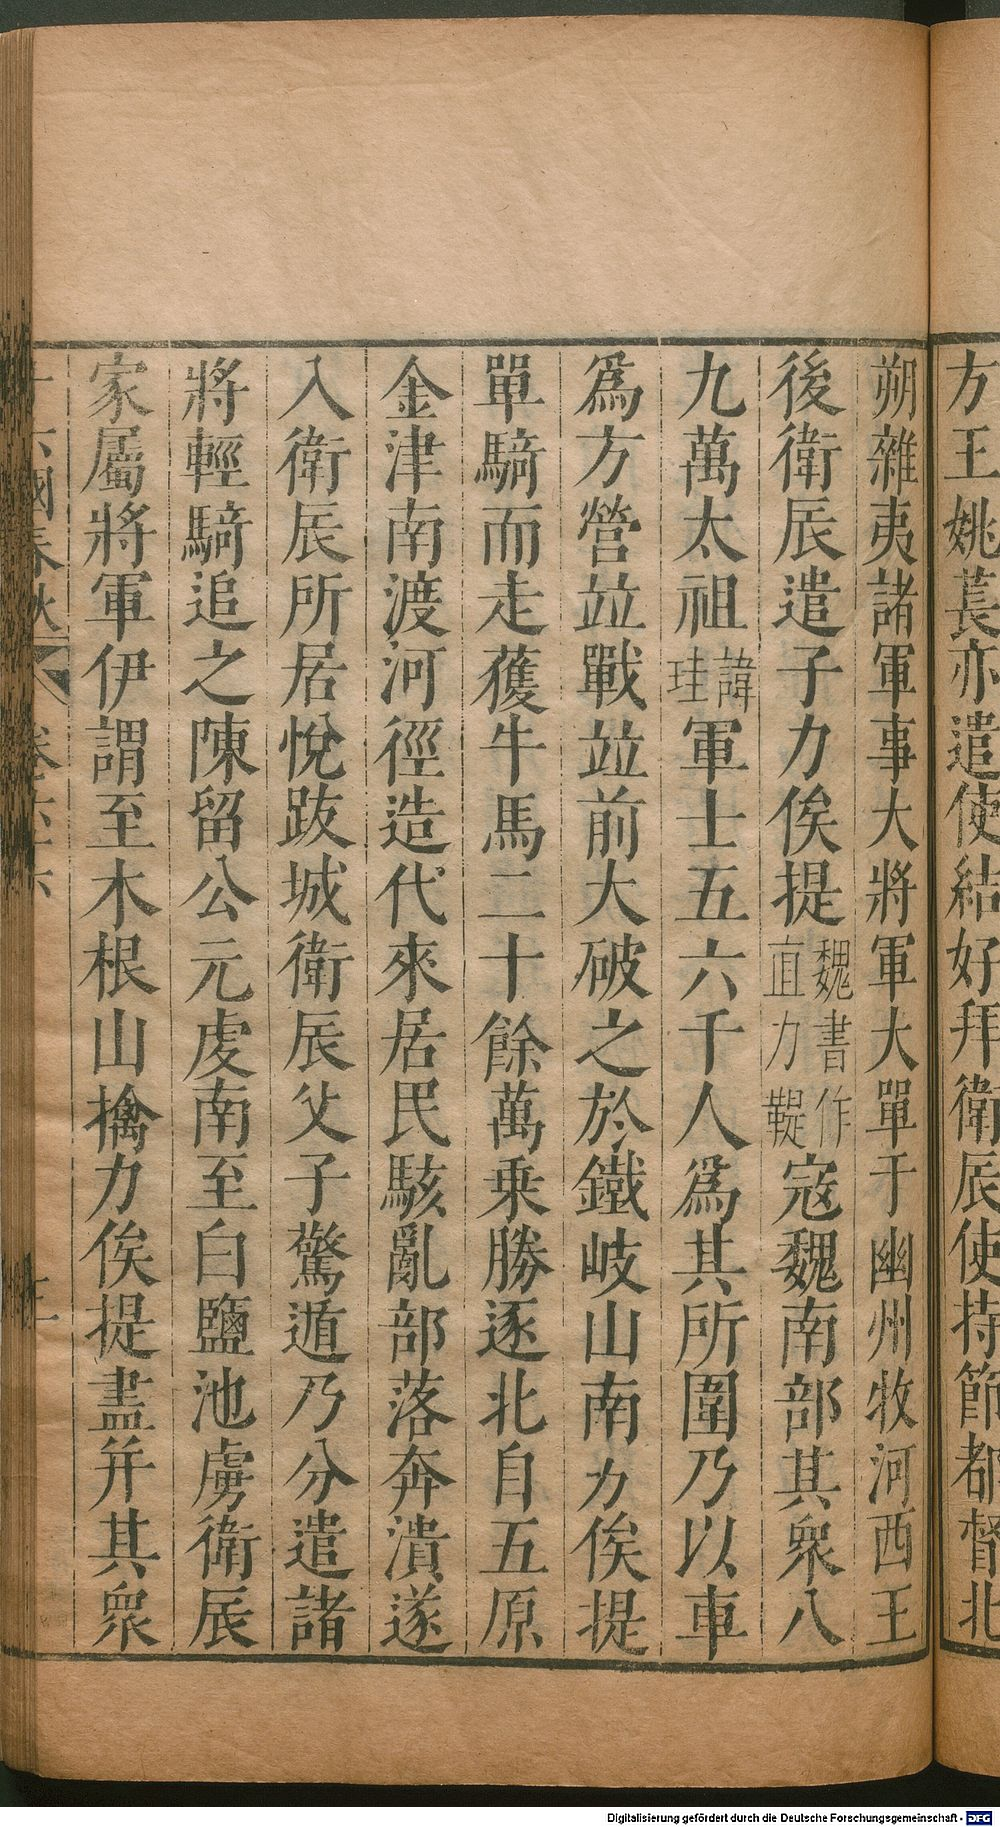 方王姚萇亦遣使結好拜衛辰使持節都督北
朔雜夷諸軍事大將軍大單于幽州牧河西王
後衛辰遣子力俟提魏書作直力鞮寇魏南部其衆八
九萬太祖諱珪軍士五六千人爲其所圍乃以車
爲方營並戰並前大破之於鐵岐山南力俟提
單騎而走獲牛馬二十餘萬乗勝逐北自五原
金津南渡河徑造代來居民駭亂部落奔潰遂
入衛辰所居悅跋城衛辰父子驚遁乃分遣諸
將輕騎追之陳留公元虔南至白鹽池虜衛辰
家屬將軍伊謂至木根山擒力俟提盡并其衆
十六國春秋 卷六十六
Digitalisierung gefördert durch die Deutsche Forschungsgemeinschaft - DFG